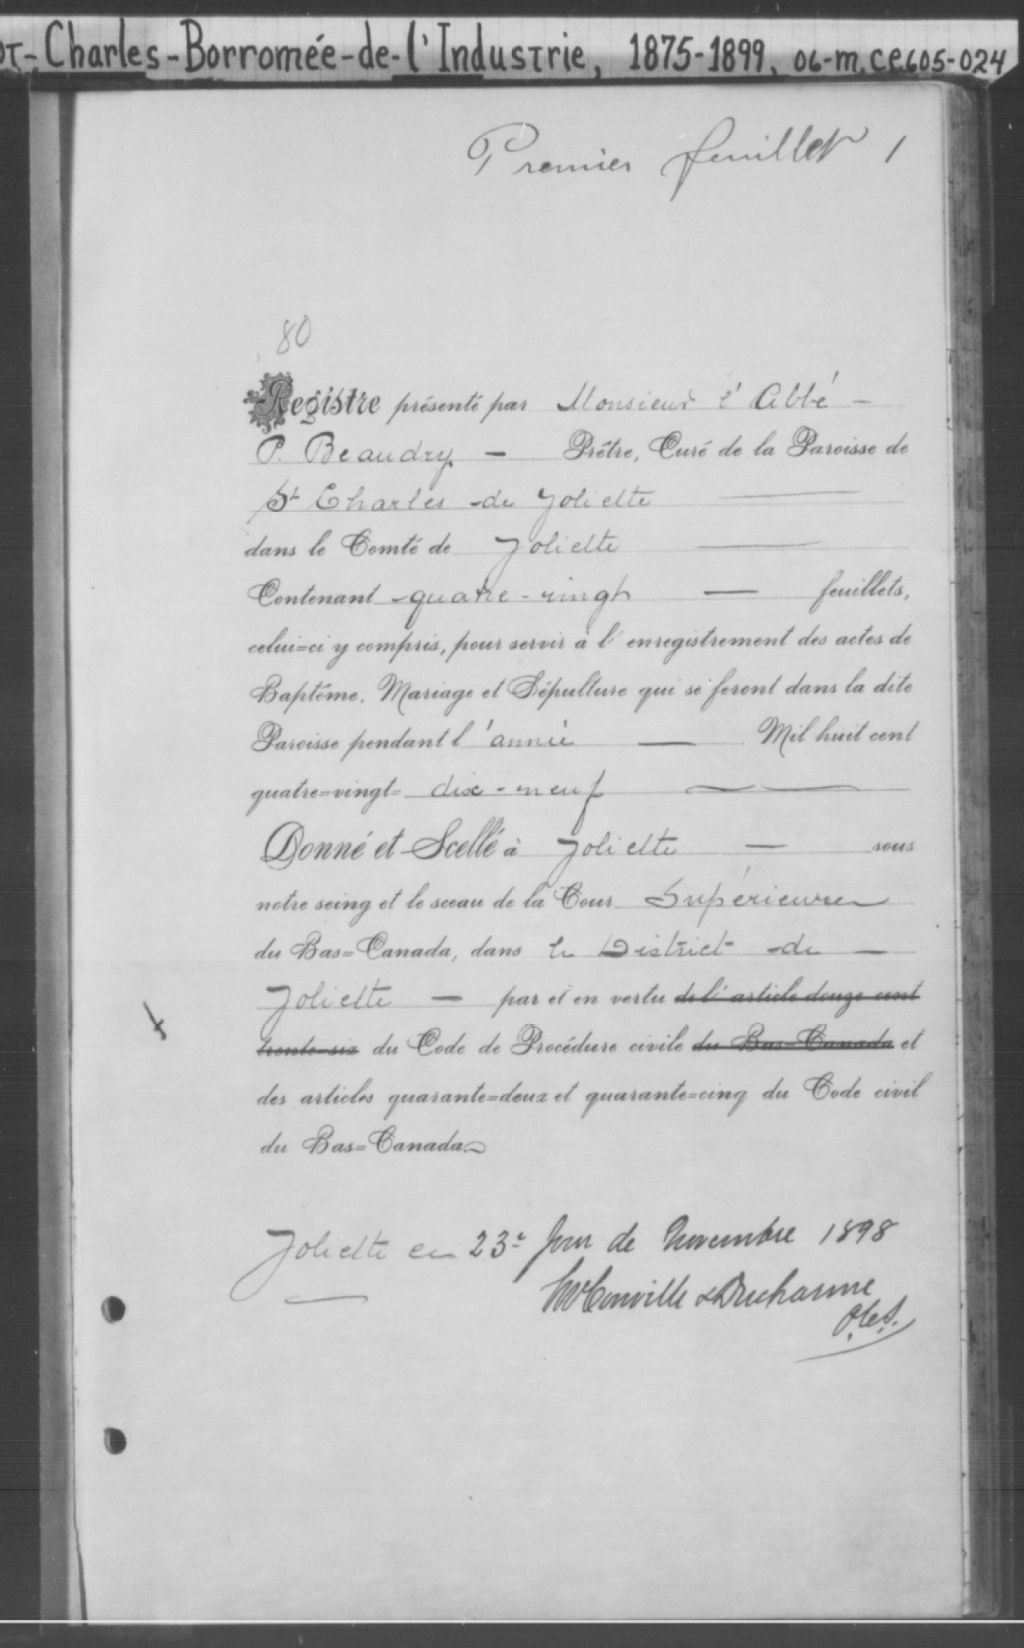 οτ-Charles-Borromée-de-l'Industrie, 1875-1899, 06-m.ce605-024
Premier feuillet 1
80
Registre présenté par Monsieur l'Abbé -
P. Beaudry - Prêtre, Curé de la Paroisse de
St Charles -de Joliette
dans le Comté de Joliette
Contenant -quatre-vingt — feuillets,
celui=ci y compris, pour servir à l'enregistrement des actes de
Baptême, Mariage et Sépulture qui se feront dans la dite
Paroisse pendant l'année — Mil huit cent
quatre=vingt= dix-neuf
Donné et Scellé à Joliette — sous
notre seing et le sceau de la Cour Supérieure
du Bas=Canada, dans le District -de —
Joliette — par et en vertu de l'article douze cent
trente-six du Code de Procédure civile du Bas-Canada et
des articles quarante=deux et quarante=cinq du Code civil
du Bas=Canada.
Joliette ce 23e Jour de Novembre 1898
McConville & Ducharme
P.C.S.